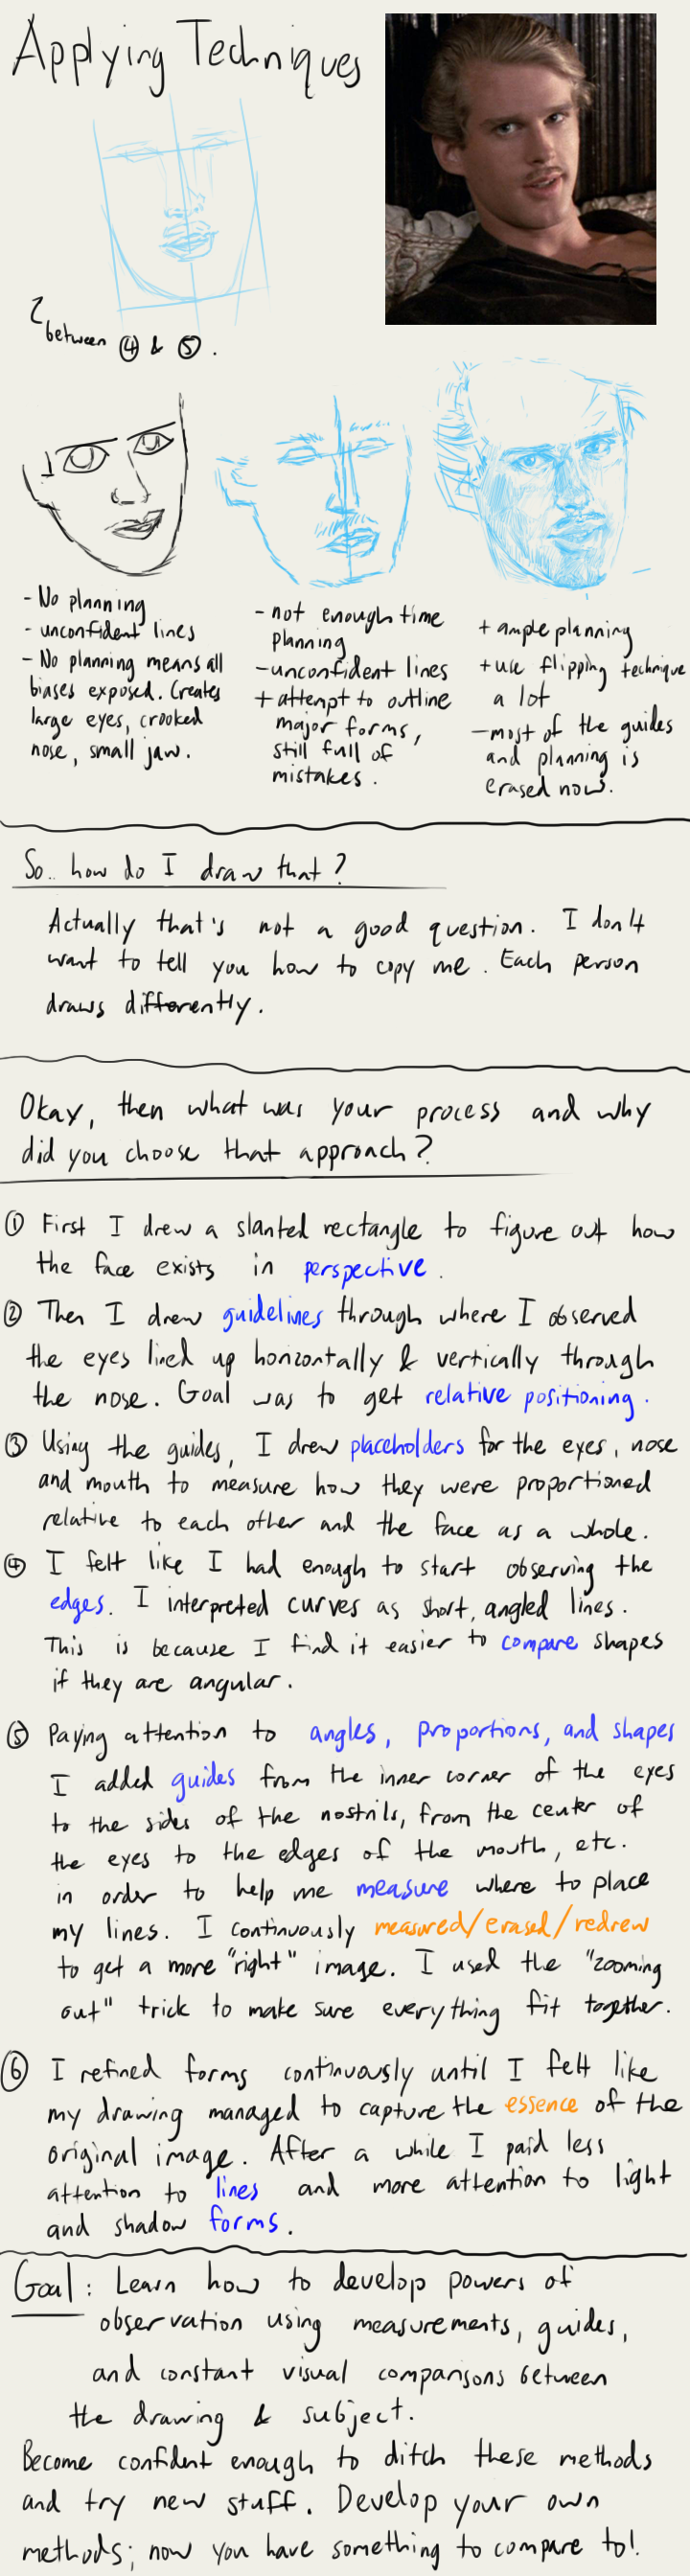 Applying Techniques
between ④ & ⑤.
- No planning
- unconfident lines
- No planning means all
biases exposed. Creates
large eyes, crooked
nose, small jaw.
- not enough time
planning
- unconfident lines
+ attempt to outline
major forms,
still full of
mistakes.
+ ample planning
+ use flipping technique
a lot
- most of the guides
and planning is
erased now.
So.. how do I draw that?
Actually that's not a good question. I don't
want to tell you how to copy me. Each person
draws differently.
Okay, then what was your process and why
did you choose that approach?
① First I drew a slanted rectangle to figure out how
the face exists in perspective.
② Then I drew guidelines through where I observed
the eyes lined up horizontally & vertically through
the nose. Goal was to get relative positioning.
③ Using the guides, I drew placeholders for the eyes, nose
and mouth to measure how they were proportioned
relative to each other and the face as a whole.
④ I felt like I had enough to start observing the
edges. I interpreted curves as short, angled lines.
This is because I find it easier to compare shapes
if they are angular.
⑤ Paying attention to angles, proportions, and shapes
I added guides from the inner corner of the eyes
to the sides of the nostrils, from the center of
the eyes to the edges of the mouth, etc.
in order to help me measure where to place
my lines. I continuously measured/erased/redrew
to get a more "right" image. I used the "zooming
out" trick to make sure everything fit together.
⑥ I refined forms continuously until I felt like
my drawing managed to capture the essence of the
original image. After a while I paid less
attention to lines and more attention to light
and shadow forms.
Goal: Learn how to develop powers of
observation using measurements, guides,
and constant visual comparisons between
the drawing & subject.
Become confident enough to ditch these methods
and try new stuff. Develop your own
methods; now you have something to compare to!